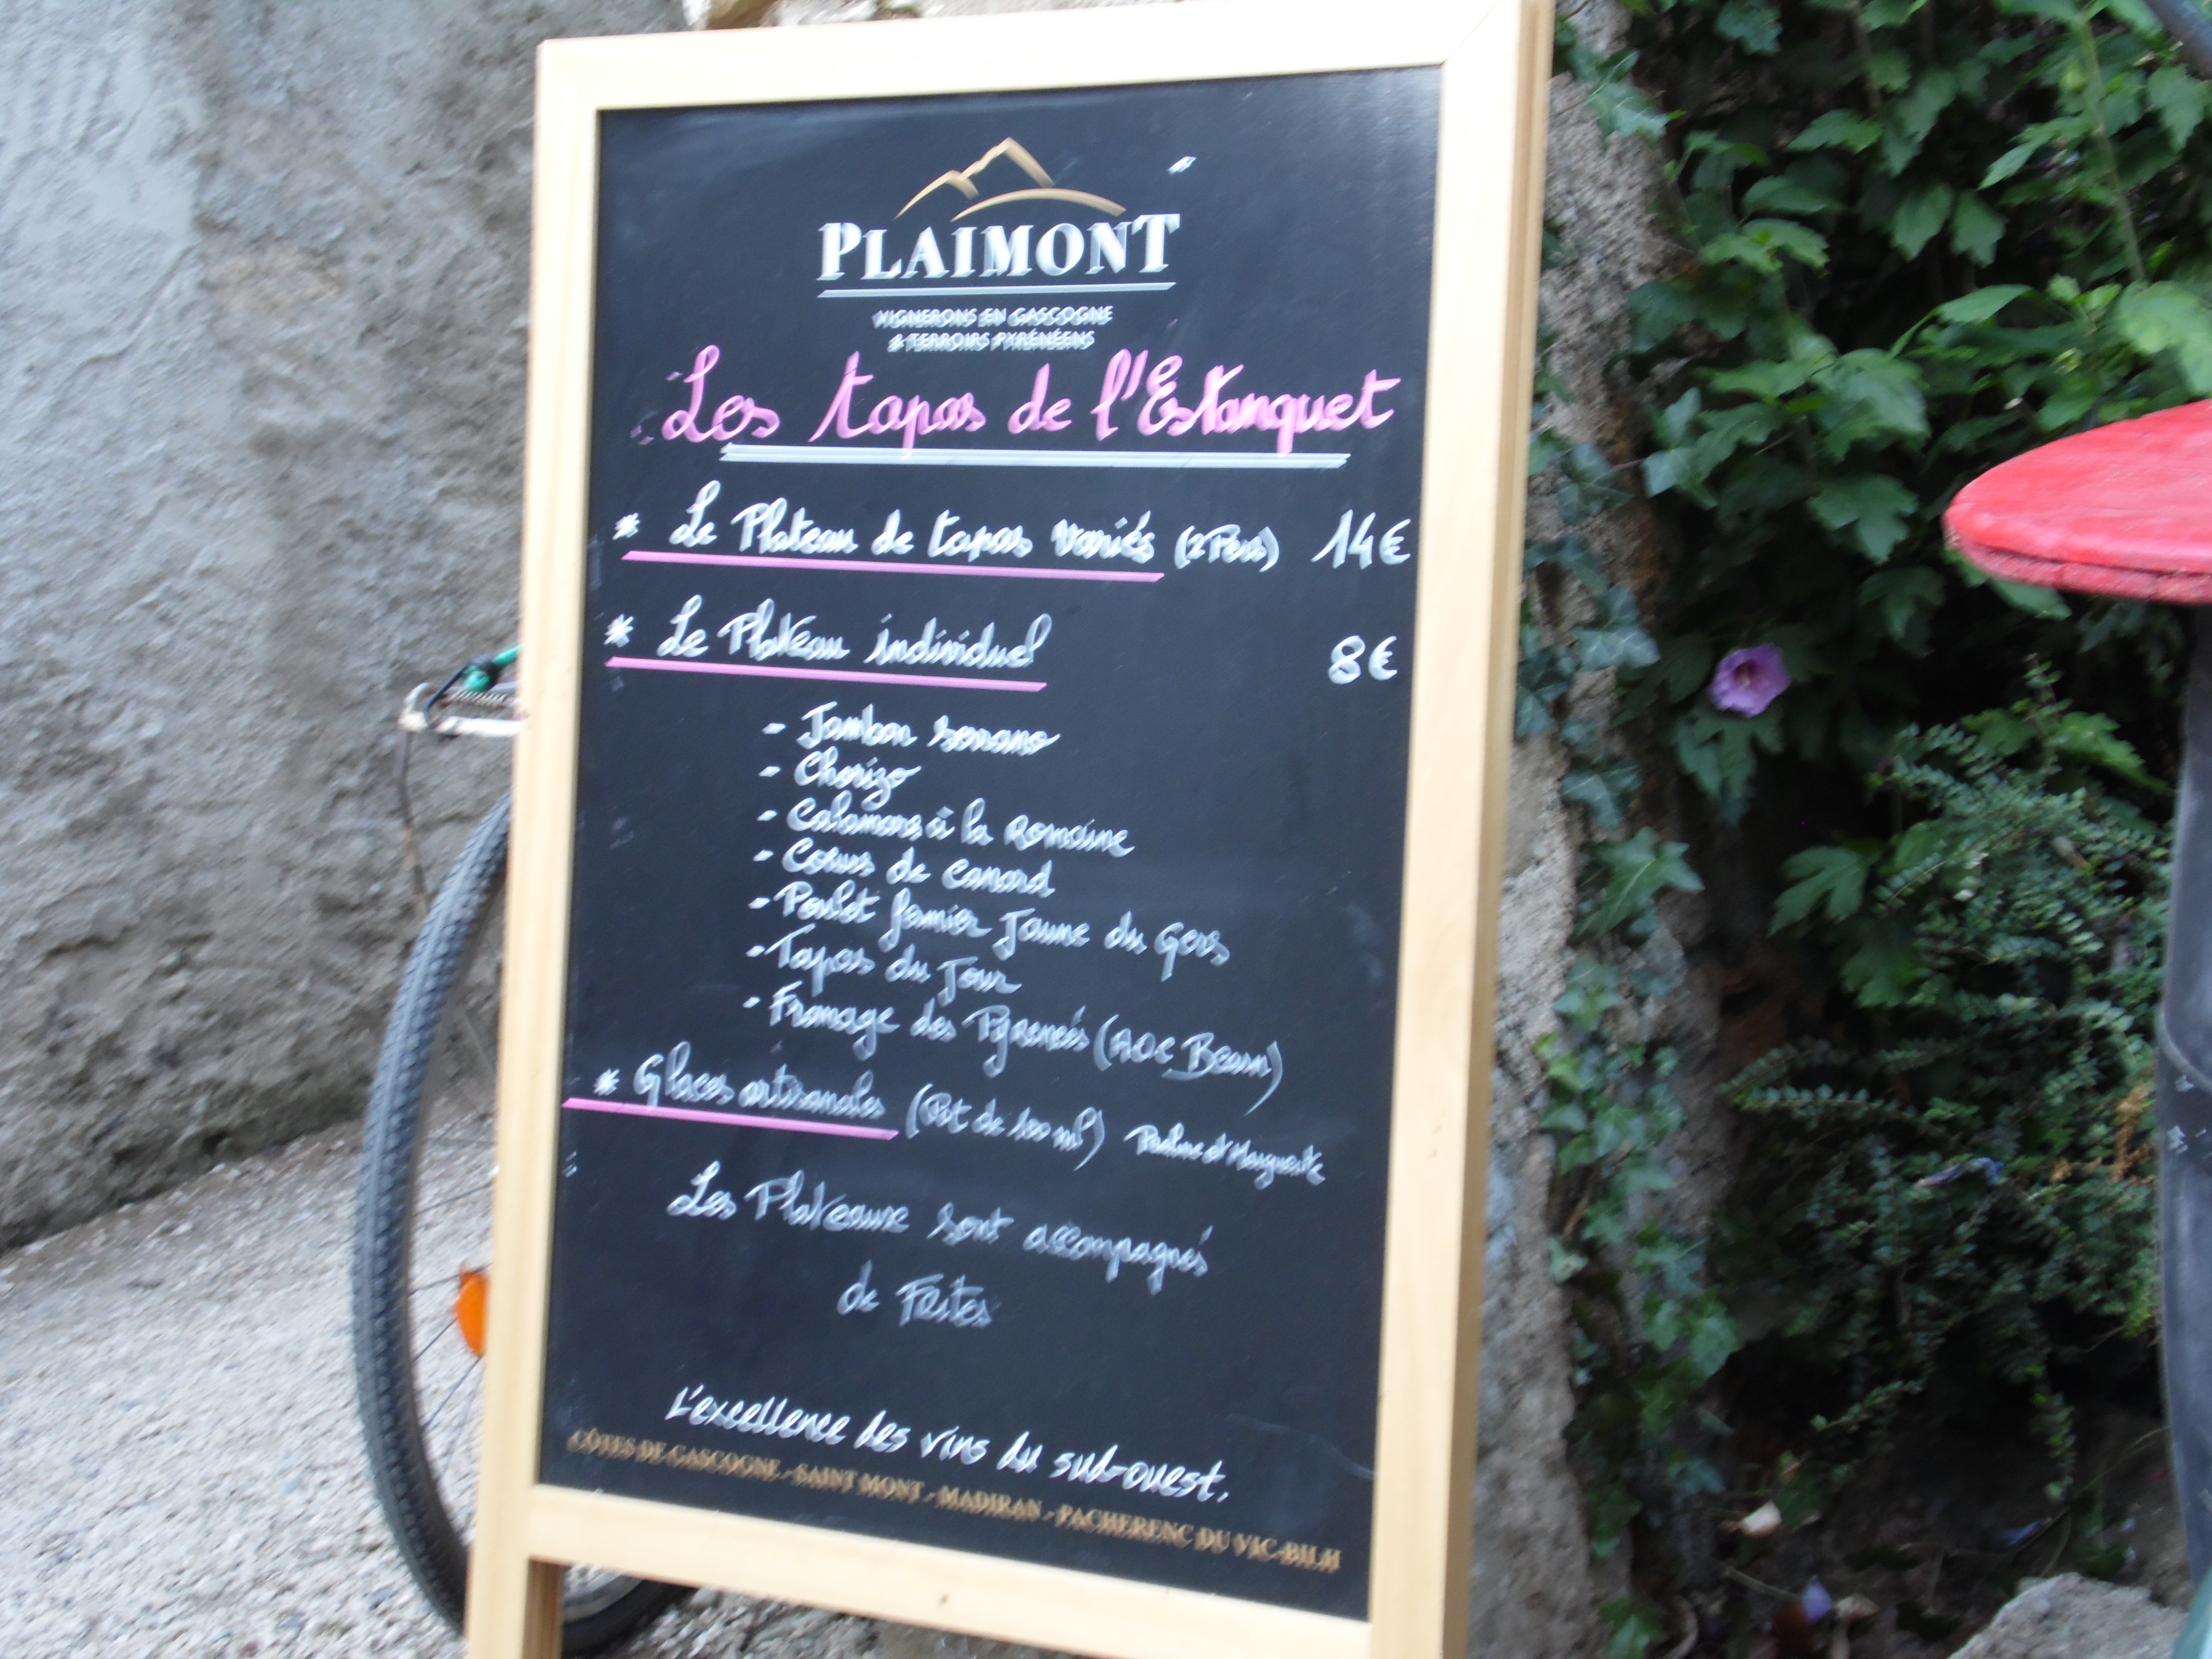 PLAIMONT
VIGNERONS EN GASCOGNE
& TERROIRS PYRÉNÉENS
Les tapas de l'Estanquet
* Le Plateau de tapas variés (2 Pers) 14€
* Le Plateau individuel 8€
- Jambon serrano
- Chorizo
- Calamars à la Romaine
- Coeurs de canard
- Poulet fermier Jaune du Gers
- Tapas du Jour
- Fromage des Pyrenées (AOC Bearn)
* Glaces artisanales (Pot de 100 ml) Pauline et Marguerite
Les Plateaux sont accompagnés
de Frites
L'excellence des vins du sud-ouest.
CÔTES DE GASCOGNE - SAINT MONT - MADIRAN - PACHERENC DU VIC-BILH